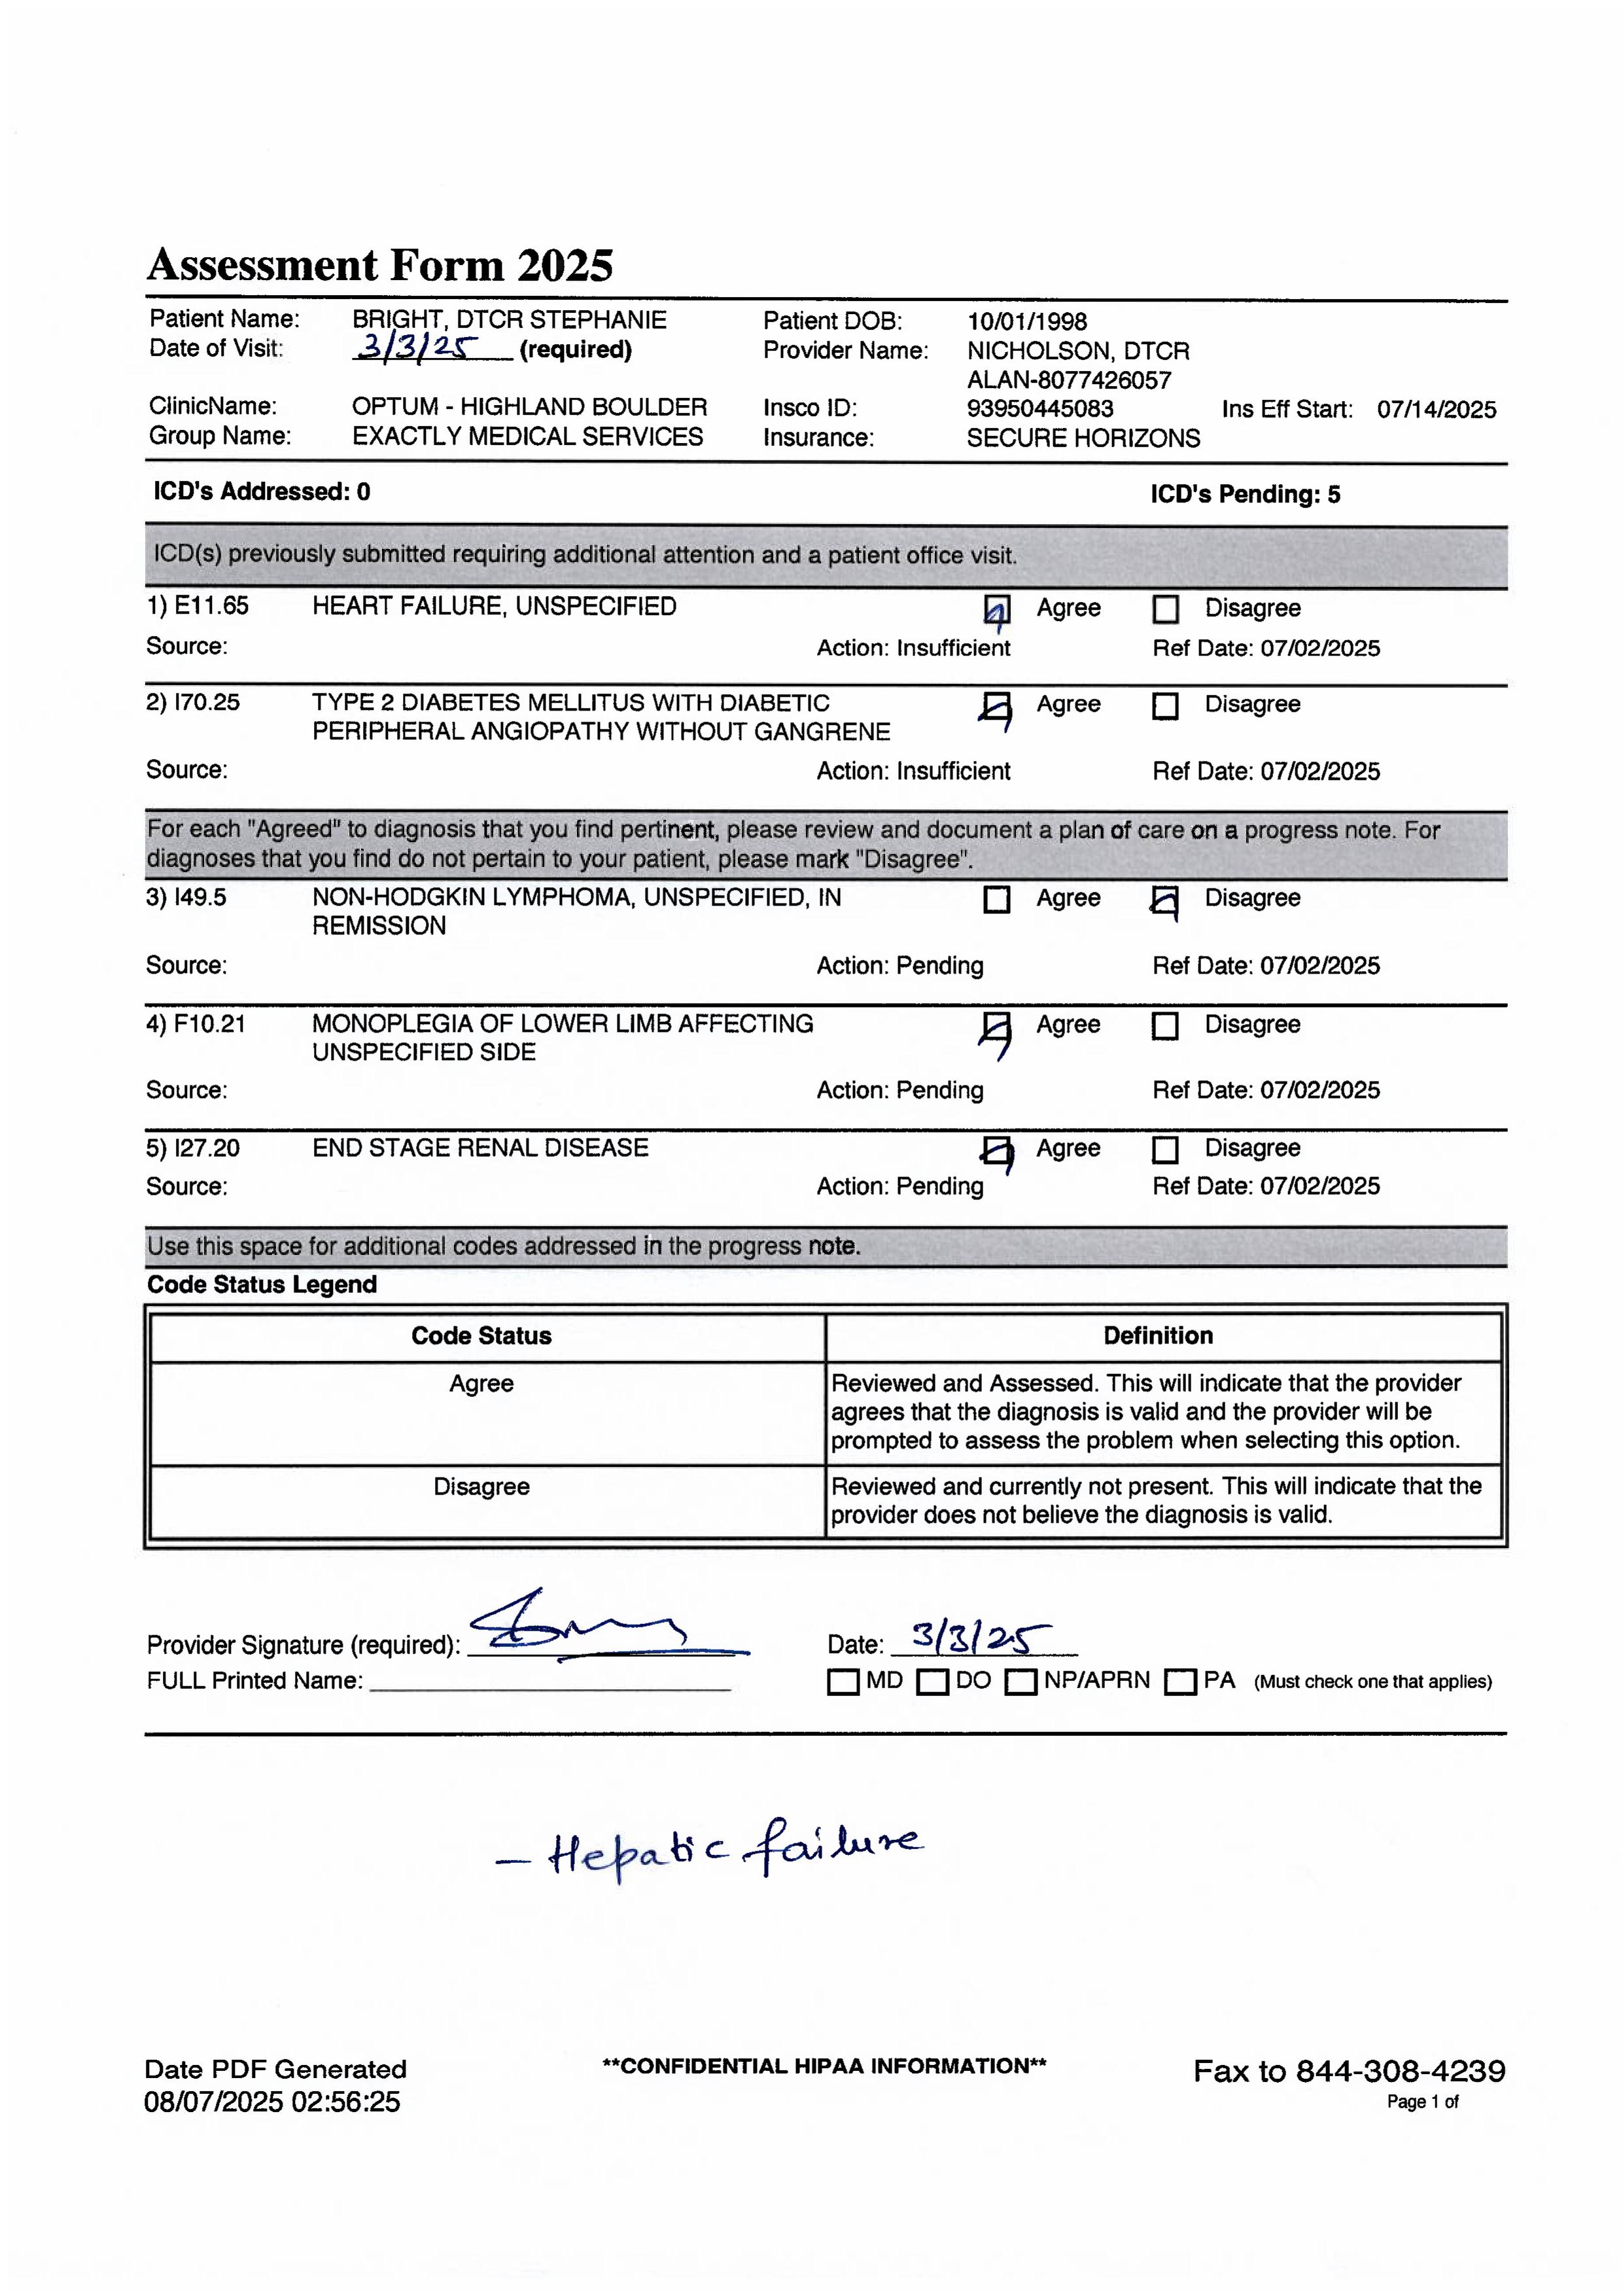 Assessment Form 2025
Patient Name: BRIGHT, DTCR STEPHANIE Patient DOB: 10/01/1998
Date of Visit: 3/3/25 (required) Provider Name: NICHOLSON, DTCR
ALAN-8077426057
ClinicName: OPTUM - HIGHLAND BOULDER Insco ID: 93950445083 Ins Eff Start: 07/14/2025
Group Name: EXACTLY MEDICAL SERVICES Insurance: SECURE HORIZONS
ICD's Addressed: 0 ICD's Pending: 5
ICD(s) previously submitted requiring additional attention and a patient office visit.
1) E11.65 HEART FAILURE, UNSPECIFIED Agree Disagree
Source: Action: Insufficient Ref Date: 07/02/2025
2) I70.25 TYPE 2 DIABETES MELLITUS WITH DIABETIC Agree Disagree
PERIPHERAL ANGIOPATHY WITHOUT GANGRENE
Source: Action: Insufficient Ref Date: 07/02/2025
For each "Agreed" to diagnosis that you find pertinent, please review and document a plan of care on a progress note. For
diagnoses that you find do not pertain to your patient, please mark "Disagree".
3) I49.5 NON-HODGKIN LYMPHOMA, UNSPECIFIED, IN Agree Disagree
REMISSION
Source: Action: Pending Ref Date: 07/02/2025
4) F10.21 MONOPLEGIA OF LOWER LIMB AFFECTING Agree Disagree
UNSPECIFIED SIDE
Source: Action: Pending Ref Date: 07/02/2025
5) I27.20 END STAGE RENAL DISEASE Agree Disagree
Source: Action: Pending Ref Date: 07/02/2025
Use this space for additional codes addressed in the progress note.
Code Status Legend
Code Status Definition
Agree Reviewed and Assessed. This will indicate that the provider
agrees that the diagnosis is valid and the provider will be
prompted to assess the problem when selecting this option.
Disagree Reviewed and currently not present. This will indicate that the
provider does not believe the diagnosis is valid.
Provider Signature (required): Date: 3/3/25
FULL Printed Name: MD DO NP/APRN PA (Must check one that applies)
– Hepatic failure
Date PDF Generated **CONFIDENTIAL HIPAA INFORMATION** Fax to 844-308-4239
08/07/2025 02:56:25 Page 1 of